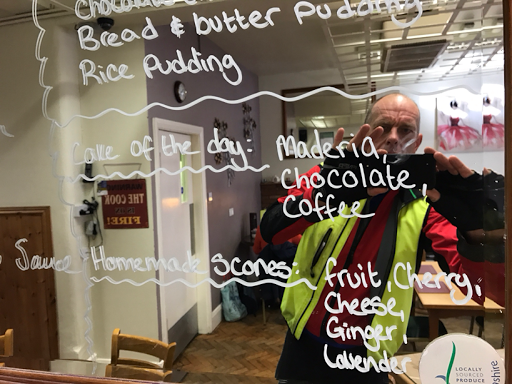 Chocolate
Bread & butter Pudding
Rice Pudding
Cake of the day: Maderia,
Chocolate,
Coffee
THE COOK
FIRE!
Sauce
Homemade Scones: fruit, Cherry,
Cheese,
Ginger,
Lavender
LOCALLY
SOURCED
PRODUCE
shire